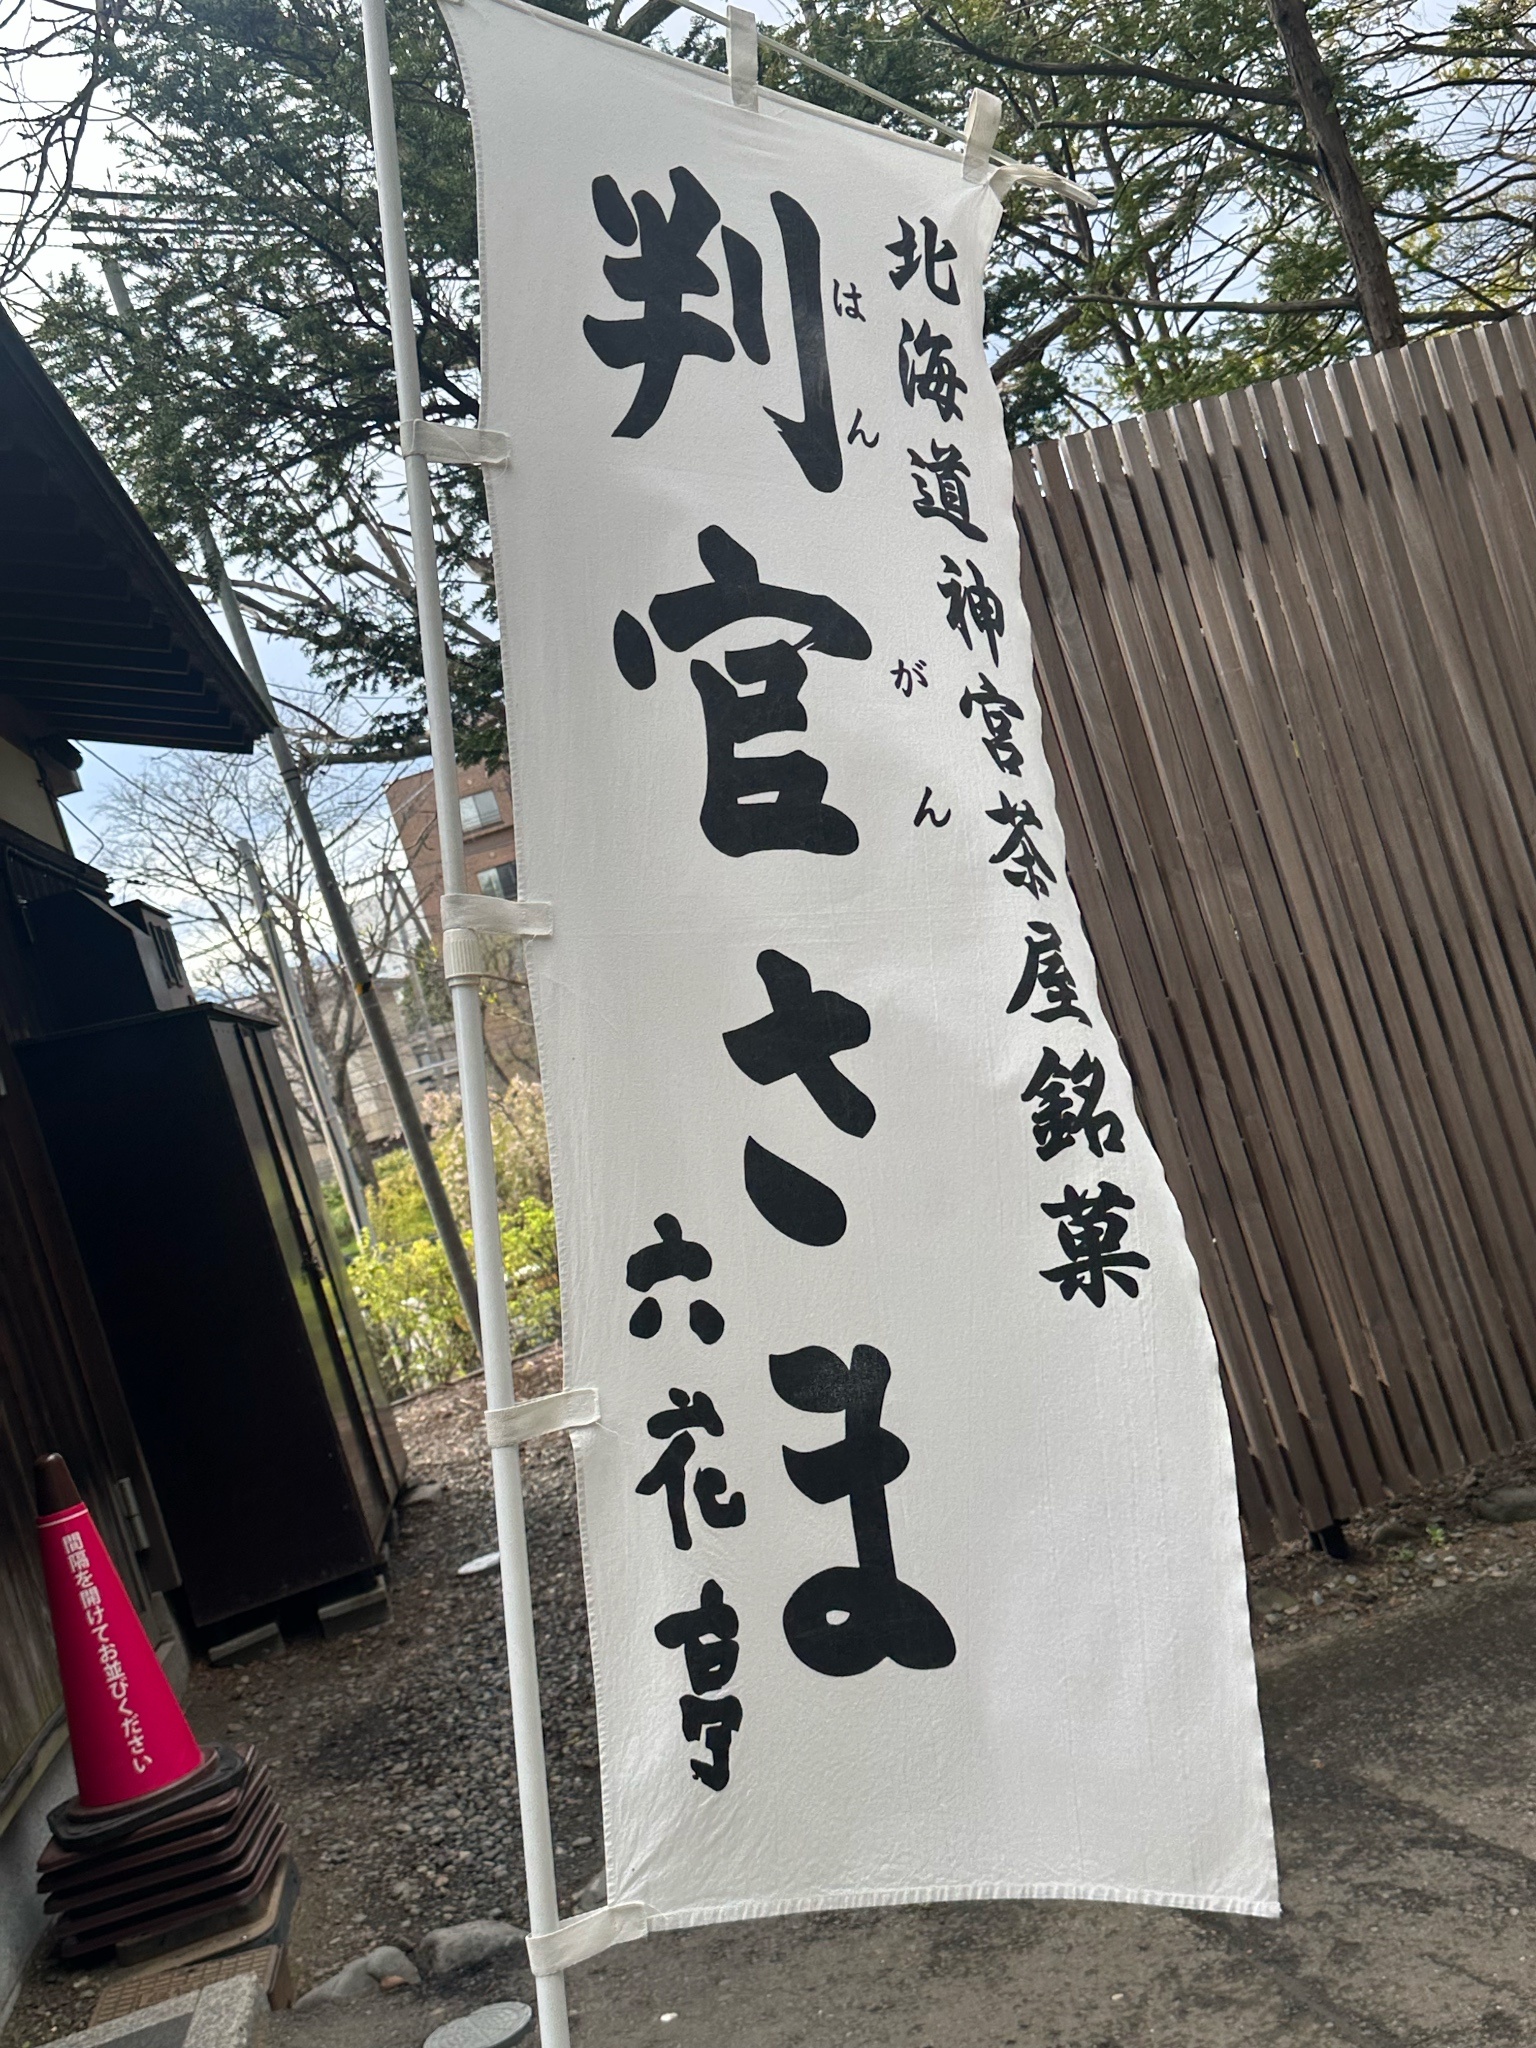 北海道神宮茶屋銘菓
はんがん
判官さま
六花亭
間隔を開けてお並びください